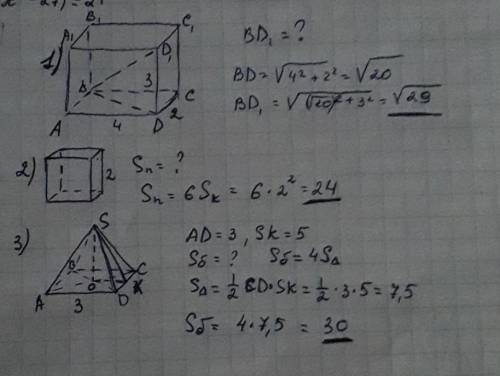 x² - 27) = 2
1)
B₁
C₁
A₁
D₁
B
3
C
2
A
4
D
BD₁ = ?
BD = √4² + 2² = √20
BD₁ = √(√20)² + 3² = √29
2)
2
Sп = ?
Sп = 6Sк = 6 · 2² = 24
3)
S
B
C
O
K
A
3
D
AD = 3, SK = 5
Sб = ? Sб = 4S∆
S∆ = 1/2 CD · SK = 1/2 · 3 · 5 = 7,5
Sб = 4 · 7,5 = 30